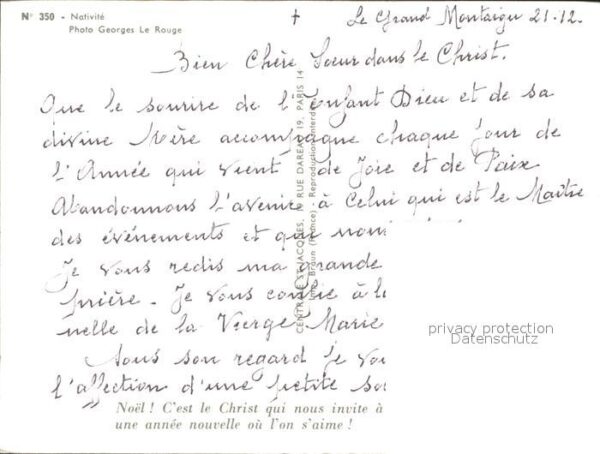 N° 350 - Nativité
Photo Georges Le Rouge
Le Grand Montaigu 21-12.
Bien Chère Soeur dans le Christ.
Que le sourire de l'Enfant Dieu et de sa
divine Mère accompagne chaque Jour de
l'Année qui vient de Joie et de Paix
Abandonnons l'avenir à Celui qui est le Maître
des événements et qui nous
Je vous redis ma grande
prière. Je vous confie à la
nelle de la Vierge Marie
Sous son regard Je vou
l'affection d'une petite so
Noël ! C'est le Christ qui nous invite à
une année nouvelle où l'on s'aime !
CENTRE ST-JACQUES, 19 RUE DAREAU 19, PARIS 14
Imp. Braun (France) - Reproduction interd
privacy protection
Datenschutz